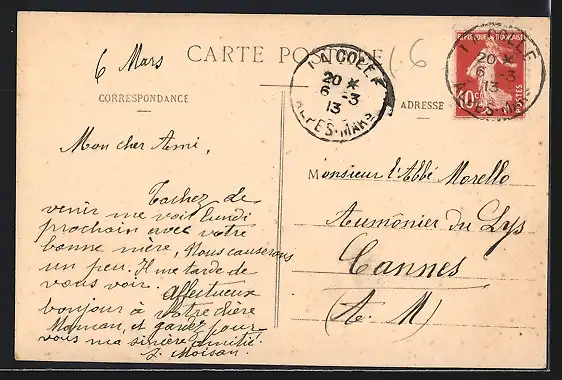 CARTE POSTALE
6 Mars
CORRESPONDANCE
ADRESSE
LA COLLE
20 *
6 -3
13
ALPES-MARS
LA COLLE
20 *
6 -3
13
REPUBLIQUE FRANÇAISE
10c
POSTES
Mon cher Ami,
Tachez de
venir me voir lundi
prochain avec votre
bonne mère, Nous causerons
un peu. Il me tarde de
vous voir. Affectueux
bonjour à votre chère
Maman, et gardez pour
vous ma sincère amitié.
J. Moisan.
Monsieur l'Abbé Morello
Aumônier du Lys
Cannes
(A. M)